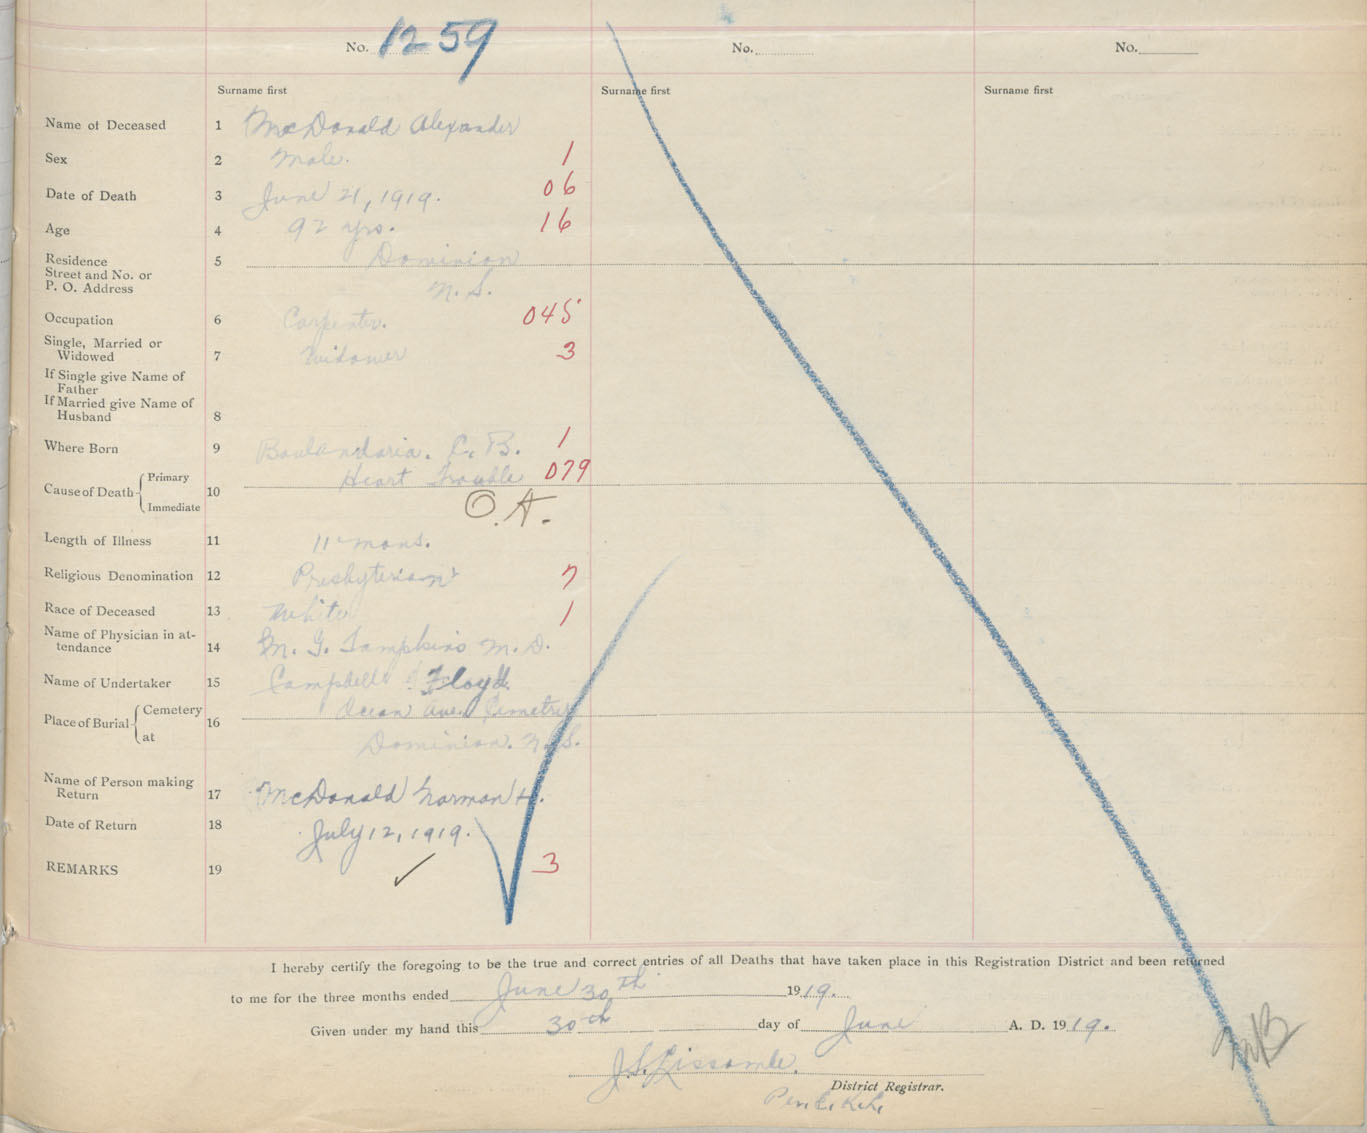 No. 1259 No. No.
Surname first Surname first Surname first
Name of Deceased 1 McDonald Alexander
Sex 2 Male. 1
Date of Death 3 June 21, 1919. 06
Age 4 92 yrs. 16
Residence 5 Dominion
Street and No. or
P. O. Address N. S.
Occupation 6 Carpenter. 045
Single, Married or
Widowed 7 Widower 3
If Single give Name of
Father
If Married give Name of
Husband 8
Where Born 9 Boulandaria. C. B. 1
Primary Heart Trouble 079
Cause of Death 10
Immediate O.A.
Length of Illness 11 11 mons.
Religious Denomination 12 Presbyterian 7
Race of Deceased 13 White 1
Name of Physician in at-
tendance 14 M. G. Tompkins M. D.
Name of Undertaker 15 Campbell & Floyd.
Cemetery Ocean Ave. Cemetry
Place of Burial 16
at Dominion. N. S.
Name of Person making
Return 17 McDonald Norman H.
Date of Return 18 July 12, 1919.
REMARKS 19 3
I hereby certify the foregoing to be the true and correct entries of all Deaths that have taken place in this Registration District and been returned
to me for the three months ended June 30th 1919.
Given under my hand this 30th day of June A. D. 1919.
J. S. Lissomle.
District Registrar.